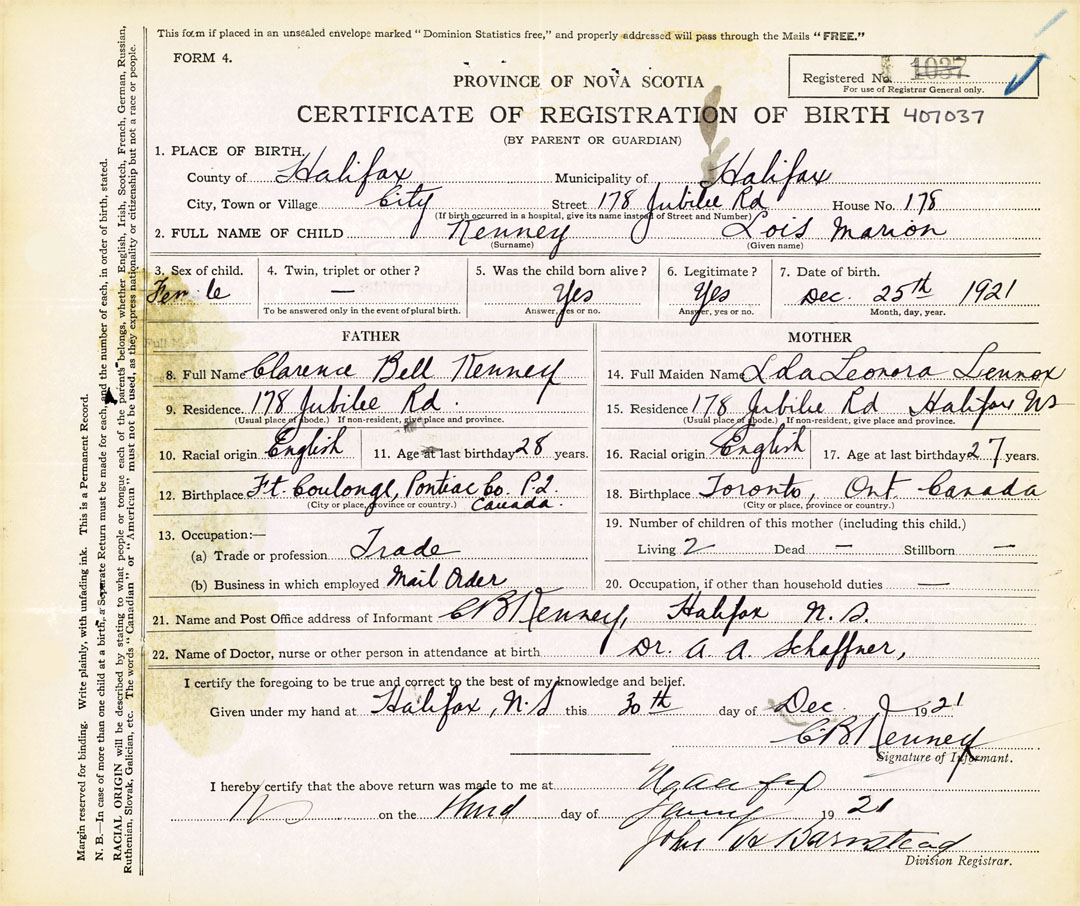 This form if placed in an unsealed envelope marked "Dominion Statistics free," and properly addressed will pass through the Mails "FREE."
FORM 4.
Registered No. 1037
For use of Registrar General only.
PROVINCE OF NOVA SCOTIA
CERTIFICATE OF REGISTRATION OF BIRTH 407037
(BY PARENT OR GUARDIAN)
1. PLACE OF BIRTH.
County of Halifax Municipality of Halifax
City, Town or Village City Street 178 Jubilee Rd House No. 178
(If birth occurred in a hospital, give its name instead of Street and Number)
2. FULL NAME OF CHILD Kenney Lois Marion
(Surname) (Given name)
3. Sex of child. 4. Twin, triplet or other? 5. Was the child born alive? 6. Legitimate? 7. Date of birth.
Fem le — Yes Yes Dec. 25th 1921
To be answered only in the event of plural birth. Answer, yes or no. Answer, yes or no. Month, day, year.
FATHER
8. Full Name Clarence Bell Kenney
9. Residence. 178 Jubilee Rd.
(Usual place of abode.) If non-resident, give place and province.
10. Racial origin English 11. Age at last birthday 28 years.
12. Birthplace Ft. Coulonge, Pontiac Co. P.Q.
(City or place, province or country.) Canada.
13. Occupation:—
(a) Trade or profession Trade
(b) Business in which employed Mail Order
MOTHER
14. Full Maiden Name Ida Leonora Lennox
15. Residence 178 Jubilee Rd Halifax NS
(Usual place of abode.) If non-resident, give place and province.
16. Racial origin English 17. Age at last birthday 27 years.
18. Birthplace Toronto, Ont. Canada
(City or place, province or country.)
19. Number of children of this mother (including this child.)
Living 2 Dead — Stillborn —
20. Occupation, if other than household duties —
21. Name and Post Office address of Informant C B Kenney, Halifax N.S.
22. Name of Doctor, nurse or other person in attendance at birth Dr. A. A. Schaffner,
I certify the foregoing to be true and correct to the best of my knowledge and belief.
Given under my hand at Halifax, N.S this 30th day of Dec. 1921
C.B. Kenney
Signature of Informant.
I hereby certify that the above return was made to me at Halifax
on the third day of 19 21
John A Barnstead
Division Registrar.
Margin reserved for binding. Write plainly, with unfading ink. This is a Permanent Record.
N. B.—In case of more than one child at a birth, a Separate Return must be made for each, and the number of each, in order of birth, stated.
RACIAL ORIGIN will be described by stating to what people or tongue each of the parents belongs, whether English, Irish, Scotch, French, German, Russian,
Ruthenian, Slovak, Galician, etc. The words "Canadian" or "American" must not be used, as they express nationality or citizenship but not a race or people.